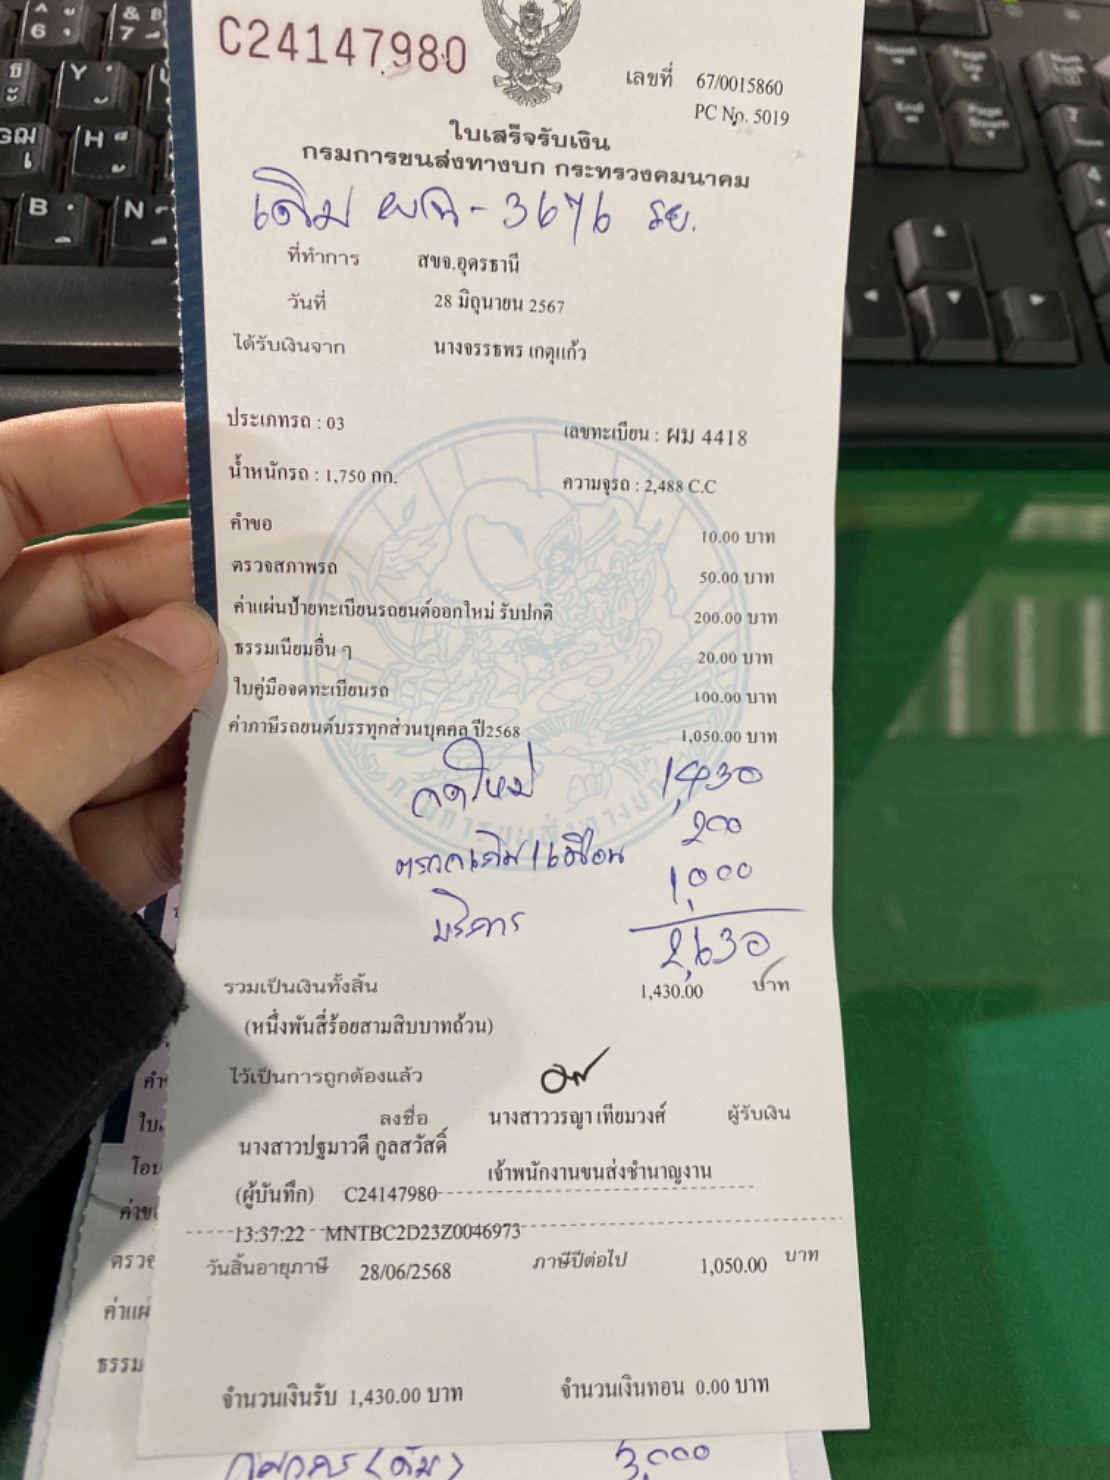 C24147980
เลขที่ 67/0015860
PC No. 5019
ใบเสร็จรับเงิน
กรมการขนส่งทางบก กระทรวงคมนาคม
เดิม ผฉ - 3676 รย.
ที่ทำการ สขจ.อุดรธานี
วันที่ 28 มิถุนายน 2567
ได้รับเงินจาก นางจรรธพร เกตุแก้ว
ประเภทรถ : 03 เลขทะเบียน : ผม 4418
น้ำหนักรถ : 1,750 กก. ความจุรถ : 2,488 C.C
คำขอ 10.00 บาท
ตรวจสภาพรถ 50.00 บาท
ค่าแผ่นป้ายทะเบียนรถยนต์ออกใหม่ รับปกติ 200.00 บาท
ธรรมเนียมอื่น ๆ 20.00 บาท
ใบคู่มือจดทะเบียนรถ 100.00 บาท
ค่าภาษีรถยนต์บรรทุกส่วนบุคคล ปี2568 1,050.00 บาท
จดใหม่ 1,430
200
1,000
บริการ
2,630
รวมเป็นเงินทั้งสิ้น 1,430.00 บาท
(หนึ่งพันสี่ร้อยสามสิบบาทถ้วน)
ไว้เป็นการถูกต้องแล้ว
ลงชื่อ นางสาววรญา เทียมวงศ์ ผู้รับเงิน
นางสาวปฐมาวดี กูลสวัสดิ์
เจ้าพนักงานขนส่งชำนาญงาน
(ผู้บันทึก) C24147980
13:37:22 MNTBC2D23Z0046973
วันสิ้นอายุภาษี 28/06/2568 ภาษีปีต่อไป 1,050.00 บาท
จำนวนเงินรับ 1,430.00 บาท จำนวนเงินทอน 0.00 บาท
3,000